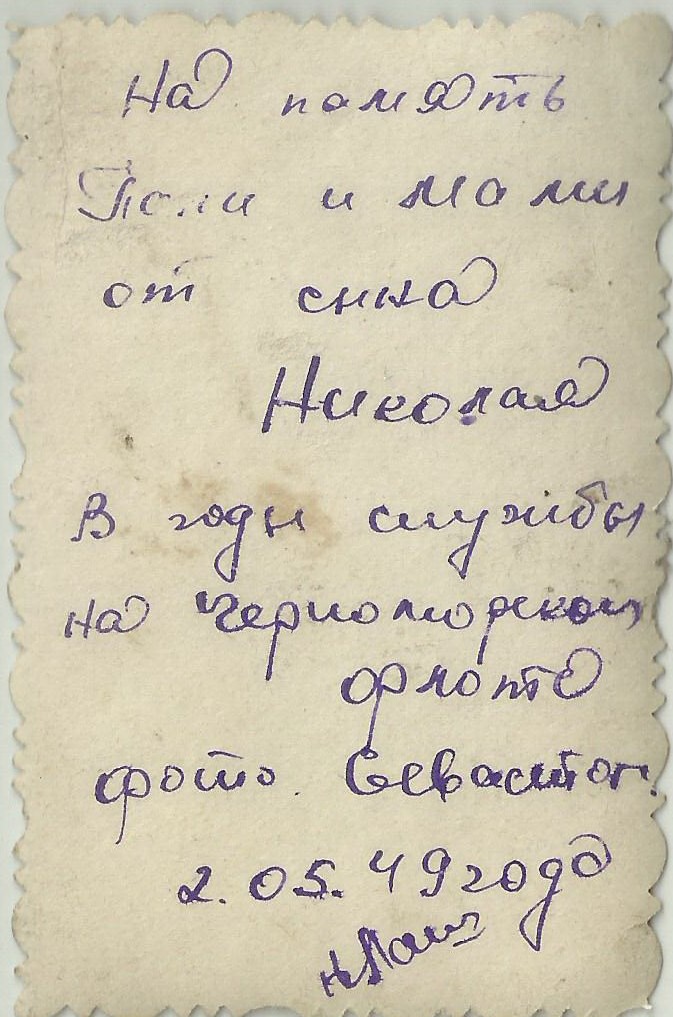 На память
Поли и мами
от сина
Николая
В годы службы
на Черноморском
флоте
фото. Севастоп.
2.05.49 года